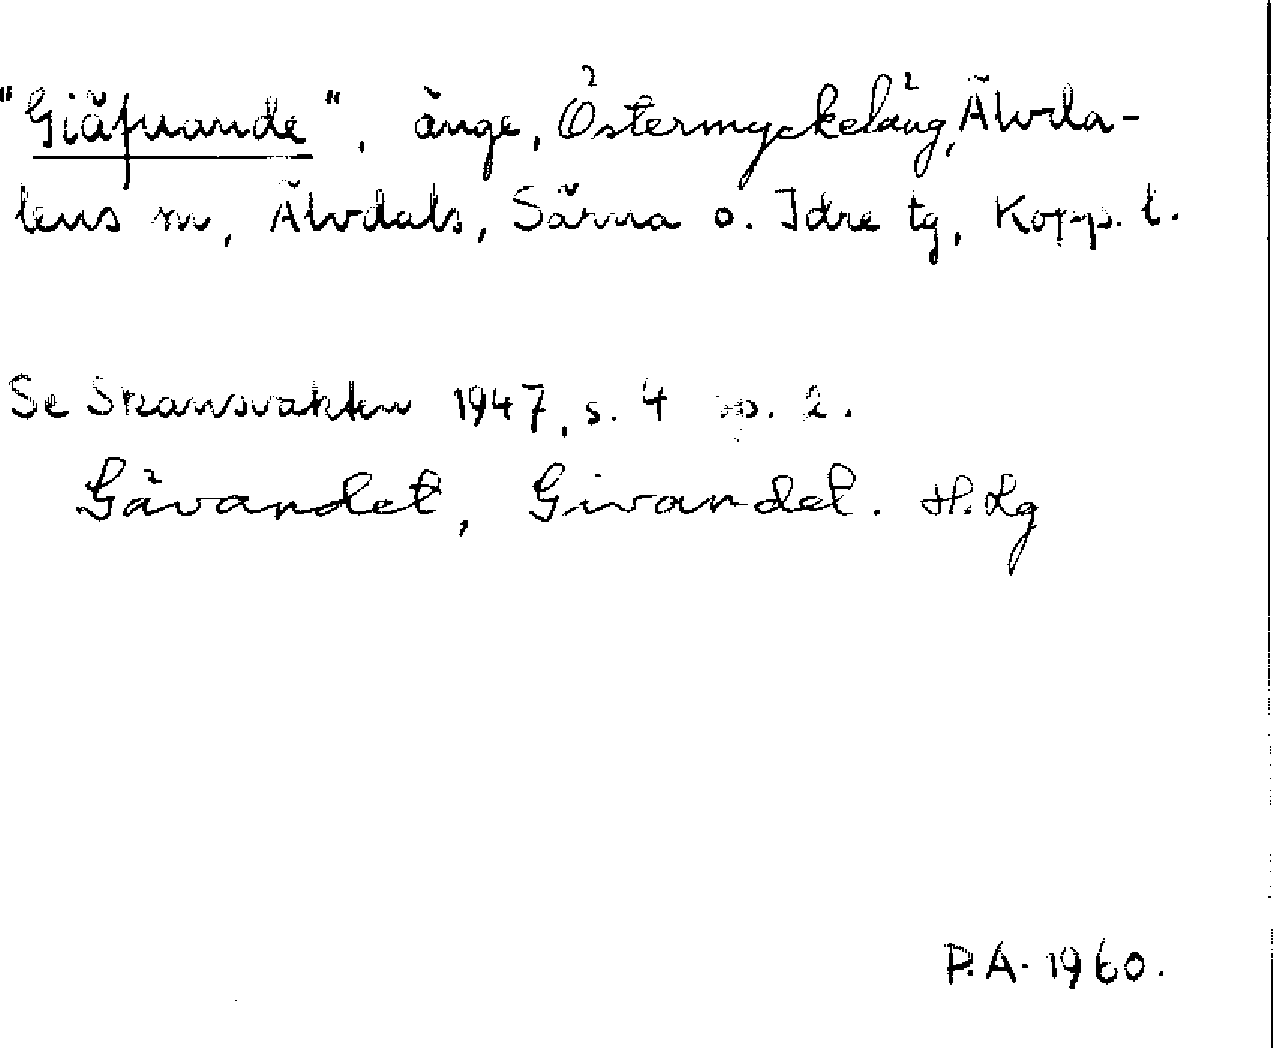 "Giäfuande", änge, Östermyckeläng, Älvda-
lens sn, Älvdals, Särna o. Idre tg, Kopp. l.
Se Skansvakten 1947, s. 4 sp. 2.
Gävandet, Givandet. H.Lg
P.A. 1960.